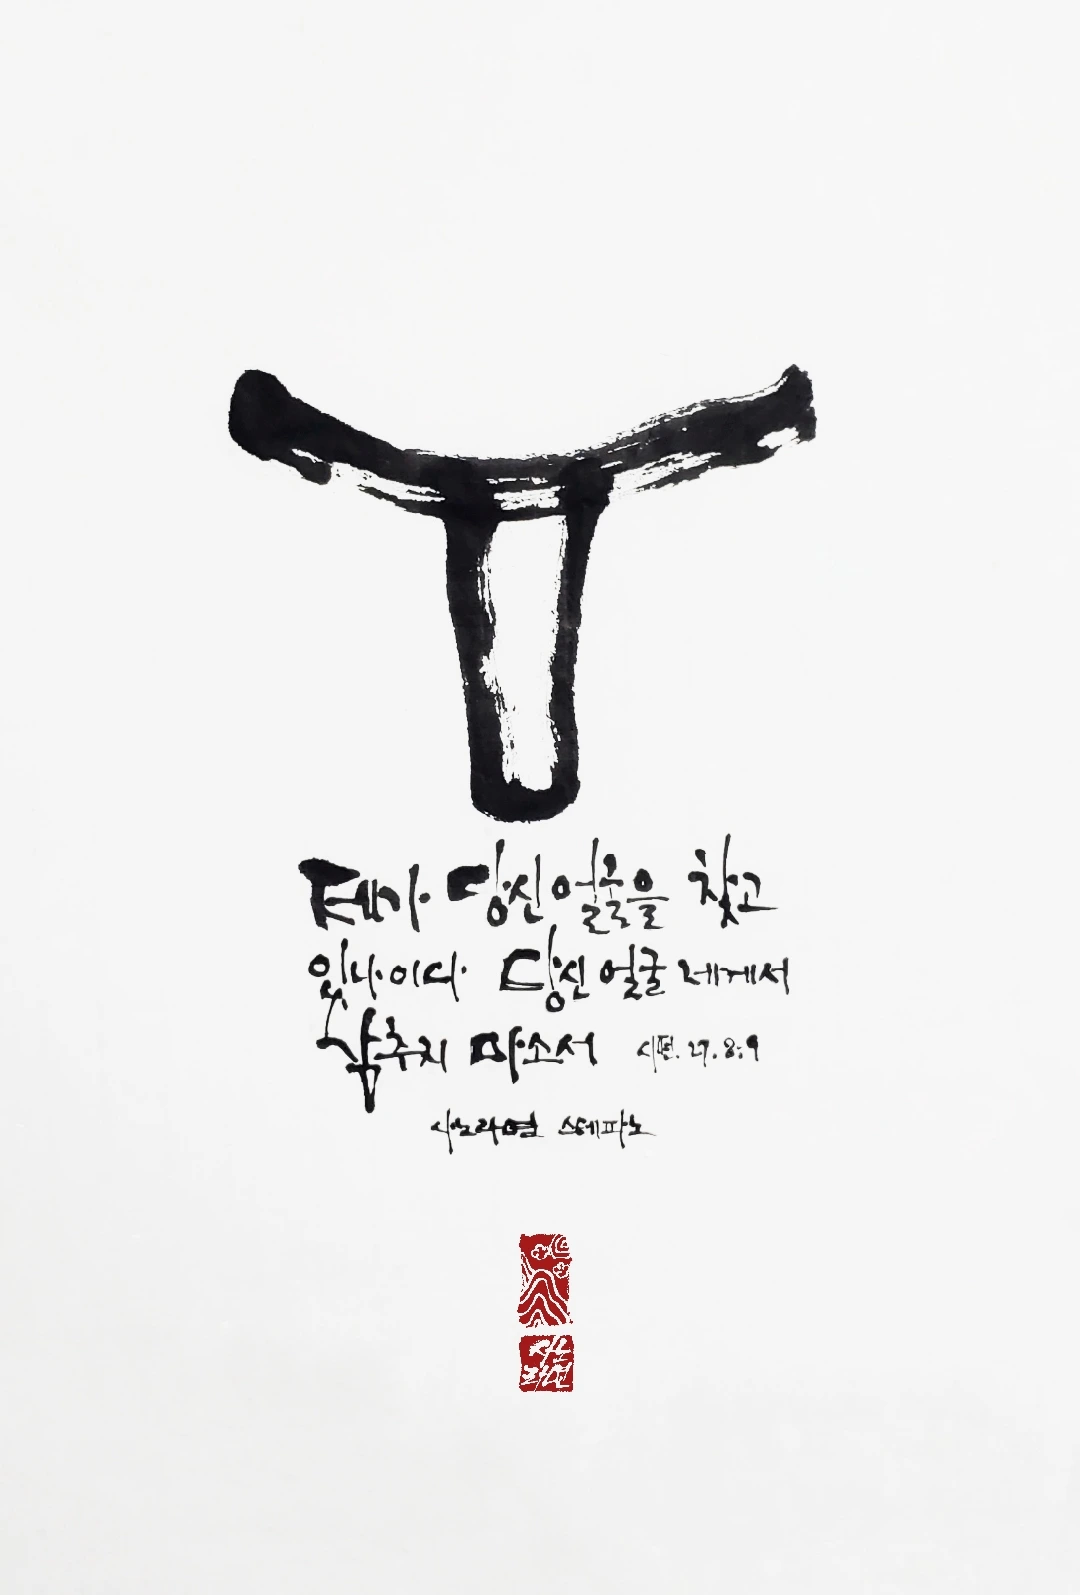 제가 당신 얼굴을 찾고
있나이다 당신 얼굴 제게서
감추지 마소서 시편. 27. 8:9
스테파노